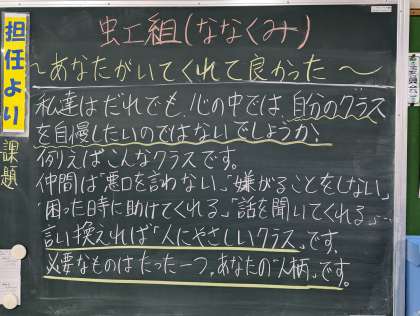 担任より
課題
虹組(ななくみ)
～あなたがいてくれて良かった～
私達はだれでも、心の中では、自分のクラス
を自慢したいのではないでしょうか？
例えばこんなクラスです。
仲間は「悪口を言わない」「嫌がることをしない」
「困った時に助けてくれる」「話を聞いてくれる」…
言い換えれば「人にやさしいクラス」です。
必要なものはたった一つ。あなたの「人柄」です。